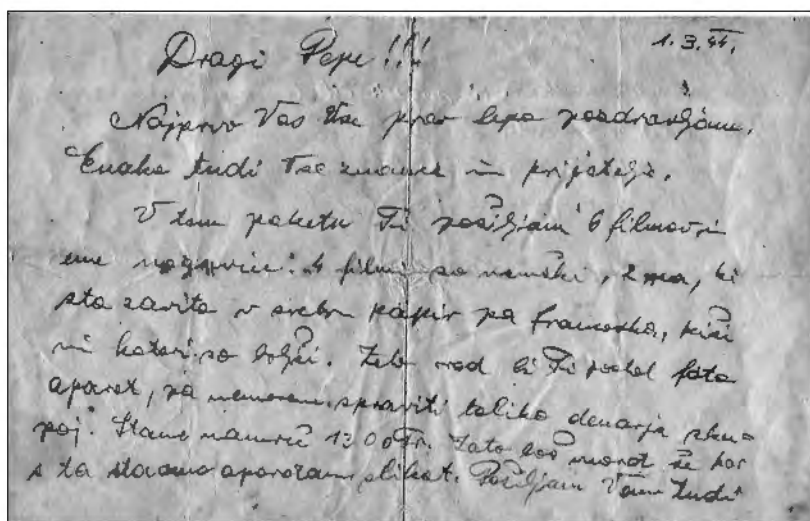 1. 3. 44.
Dragi Pepe!!!
Najprvo Vas vse prav lepo pozdravljam.
Enako tudi vse znance in prijatelje.
V tem paketu Ti pošiljam 6 filmov in
ene nogavice. 4 filmi so nemški, 2 pa, ki
sta zavita v srebrn papir pa francoska, piši
mi kateri so boljši. Zelo rad bi Ti poslal foto
aparat, pa ne morem spraviti toliko denarja sku=
paj. Stane namreč 1300 Fr. Zato boš moral še kar
s ta staromo aparatam slikat. Pošiljam Vam tudi